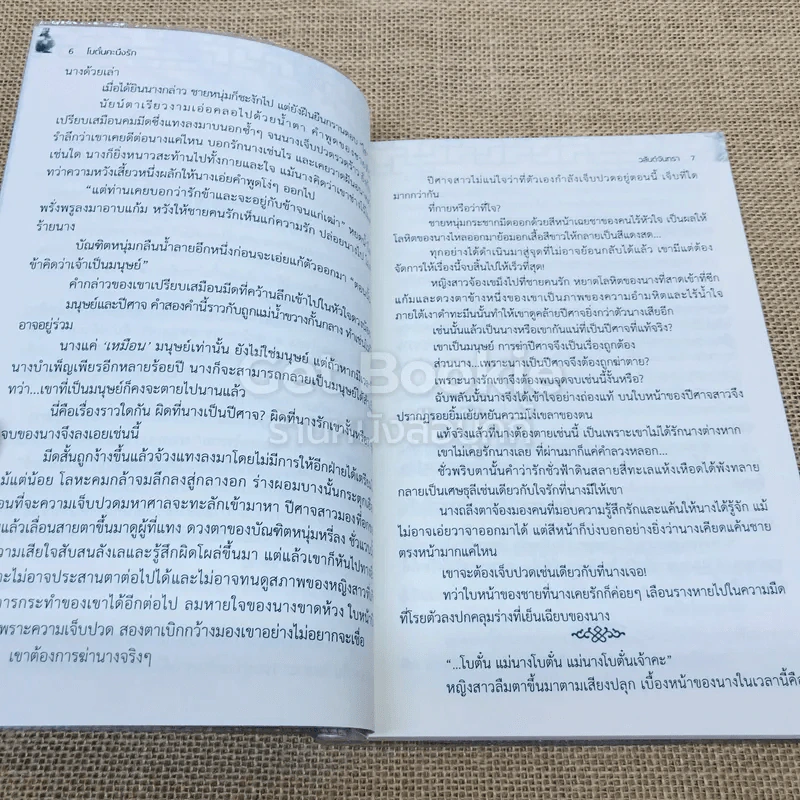 6 โบตั๋นคะนึงรัก
นางด้วยเล่า
เมื่อได้ยินนางกล่าว ชายหนุ่มก็ชะงักไป แต่ยังฝืนยืนกราน
นัยน์ตาเรียวงามเอ่อคลอไปด้วยน้ำตา คำพูดของ
เปรียบเสมือนคมมีดซึ่งแทงลงมาบนอกซ้ำๆ จนนางเจ็บปวดรวดร้าว
รำลึกว่าเขาเคยดีต่อนางแค่ไหน บอกรักนางเช่นไร และเคยวาดฝัน
เช่นใด นางก็ยิ่งหนาวสะท้านไปทั้งกายและใจ แม้นางคิดว่าเขาช่าง
ทว่าความหวังเสี้ยวหนึ่งผลักให้นางเอ่ยคำพูดโง่ๆ ออกไป
“แต่ท่านเคยบอกว่ารักข้าและจะอยู่กับข้าจนแก่เฒ่า”
พรั่งพรูลงมาอาบแก้ม หวังให้ชายคนรักเห็นแก่ความรัก ปล่อยนางไป
ร้ายนาง
บัณฑิตหนุ่มกลืนน้ำลายอึกหนึ่งก่อนจะเอ่ยแก้ตัวออกมา “ตอนนั้น
ข้าคิดว่าเจ้าเป็นมนุษย์”
คำกล่าวของเขาเปรียบเสมือนมีดที่คว้านลึกเข้าไปในหัวใจดวงน้อย
มนุษย์และปีศาจ คำสองคำนี้ราวกับถูกแม่น้ำขวางกั้นกลาง ทำเช่นไร
อาจอยู่ร่วม
นางแค่ ‘เหมือน’ มนุษย์เท่านั้น ยังไม่ใช่มนุษย์ แต่ถ้าหากมี
นางบำเพ็ญเพียรอีกหลายร้อยปี นางก็จะสามารถกลายเป็นมนุษย์ได้
ทว่า...เขาที่เป็นมนุษย์ก็คงจะตายไปนานแล้ว
นี่คือเรื่องราวใดกัน ผิดที่นางเป็นปีศาจ? ผิดที่นางรักเขางั้นหรือ
จบของนางจึงลงเอยเช่นนี้
มีดสั้นถูกง้างขึ้นแล้วจ้วงแทงลงมาโดยไม่มีการให้อีกฝ่ายได้เตรียม
แม้แต่น้อย โลหะคมกล้าจมลึกลงสู่กลางอก ร่างผอมบางนั้นกระตุก
อนที่จะความเจ็บปวดมหาศาลจะทะลักเข้ามาหา ปีศาจสาวมองที่อก
แล้วเลื่อนสายตาขึ้นมาดูผู้ที่แทง ดวงตาของบัณฑิตหนุ่มหรี่ลง ชั่วแวบ
ความเสียใจสับสนลังเลและรู้สึกผิดโผล่ขึ้นมา แต่แล้วเขาก็หันไปทาง
ะไม่อาจประสานตาต่อไปได้และไม่อาจทนดูสภาพของหญิงสาวที่
การกระทำของเขาได้อีกต่อไป ลมหายใจของนางขาดห้วง ใบหน้า
เพราะความเจ็บปวด สองตาเบิกกว้างมองเขาอย่างไม่อยากจะเชื่อ
เขาต้องการฆ่านางจริงๆ
วสันต์จันทรา 7
ปีศาจสาวไม่แน่ใจว่าที่ตัวเองกำลังเจ็บปวดอยู่ตอนนี้ เจ็บที่ใด
มากกว่ากัน
ที่กายหรือว่าที่ใจ?
ชายหนุ่มกระชากมีดออกด้วยสีหน้าเฉยชาของคนไร้หัวใจ เป็นผลให้
โลหิตของนางไหลออกมาย้อมอกเสื้อสีขาวให้กลายเป็นสีแดงสด...
ทุกอย่างได้ดำเนินมาสู่จุดที่ไม่อาจย้อนกลับได้แล้ว เขามีแต่ต้อง
จัดการให้เรื่องนี้จบสิ้นไปให้เร็วที่สุด!
หญิงสาวจ้องเขม็งไปที่ชายคนรัก หยาดโลหิตของนางที่สาดเข้าที่ซีก
แก้มและดวงตาข้างหนึ่งของเขาเป็นภาพของความอำมหิตและไร้น้ำใจ
ภายใต้เงาดำทะมึนนั้นทำให้เขาดูคล้ายปีศาจยิ่งกว่าตัวนางเสียอีก
เช่นนั้นแล้วเป็นนางหรือเขากันแน่ที่เป็นปีศาจที่แท้จริง?
เขาเป็นมนุษย์ การฆ่าปีศาจจึงเป็นเรื่องถูกต้อง
ส่วนนาง...เพราะนางเป็นปีศาจจึงต้องถูกฆ่าตาย?
เพราะนางรักเขาจึงต้องพบจุดจบเช่นนี้งั้นหรือ?
ฉับพลันนั้นนางจึงได้เข้าใจอย่างถ่องแท้ บนใบหน้าของปีศาจสาวจึง
ปรากฏรอยยิ้มเย้ยหยันความโง่เขลาของตน
แท้จริงแล้วที่นางต้องตายเช่นนี้ เป็นเพราะเขาไม่ได้รักนางต่างหาก
เขาไม่เคยรักนางเลย ที่ผ่านมาก็แค่คำลวงหลอก...
ชั่วพริบตานั้นคำว่ารักชั่วฟ้าดินสลายสี่ทะเลแห้งเหือดได้พังทลาย
กลายเป็นเศษธุลีเช่นเดียวกับใจรักที่นางมีให้เขา
นางถลึงตาจ้องมองคนที่มอบความรู้สึกรักและแค้นให้นางได้รู้จัก แม้
ไม่อาจเอ่ยวาจาออกมาได้ แต่สีหน้าก็บ่งบอกอย่างยิ่งว่านางเคียดแค้นชาย
ตรงหน้ามากแค่ไหน
เขาจะต้องเจ็บปวดเช่นเดียวกับที่นางเจอ!
ทว่าใบหน้าของชายที่นางเคยรักก็ค่อยๆ เลือนรางหายไปในความมืด
ที่โรยตัวลงปกคลุมร่างที่เย็นเฉียบของนาง
“...โบตั๋น แม่นางโบตั๋น แม่นางโบตั๋นเจ้าคะ”
หญิงสาวลืมตาขึ้นมาตามเสียงปลุก เบื้องหน้าของนางในเวลานี้คือ
Got Bookie
ร้านหนังสือ